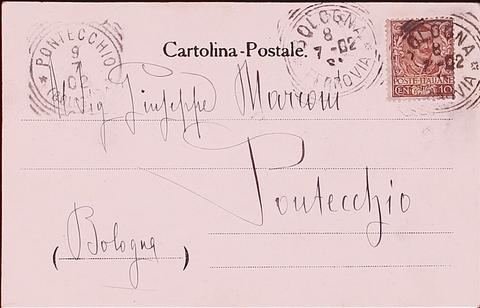 PONTECCHIO
9
7
02
BOLOGNA
8
7-02
FERROVIA
BOLOGNA
8
7-02
POSTE ITALIANE
CENT. 10
Cartolina-Postale.
Sig Giuseppe Marconi
Pontecchio
(Bologna)